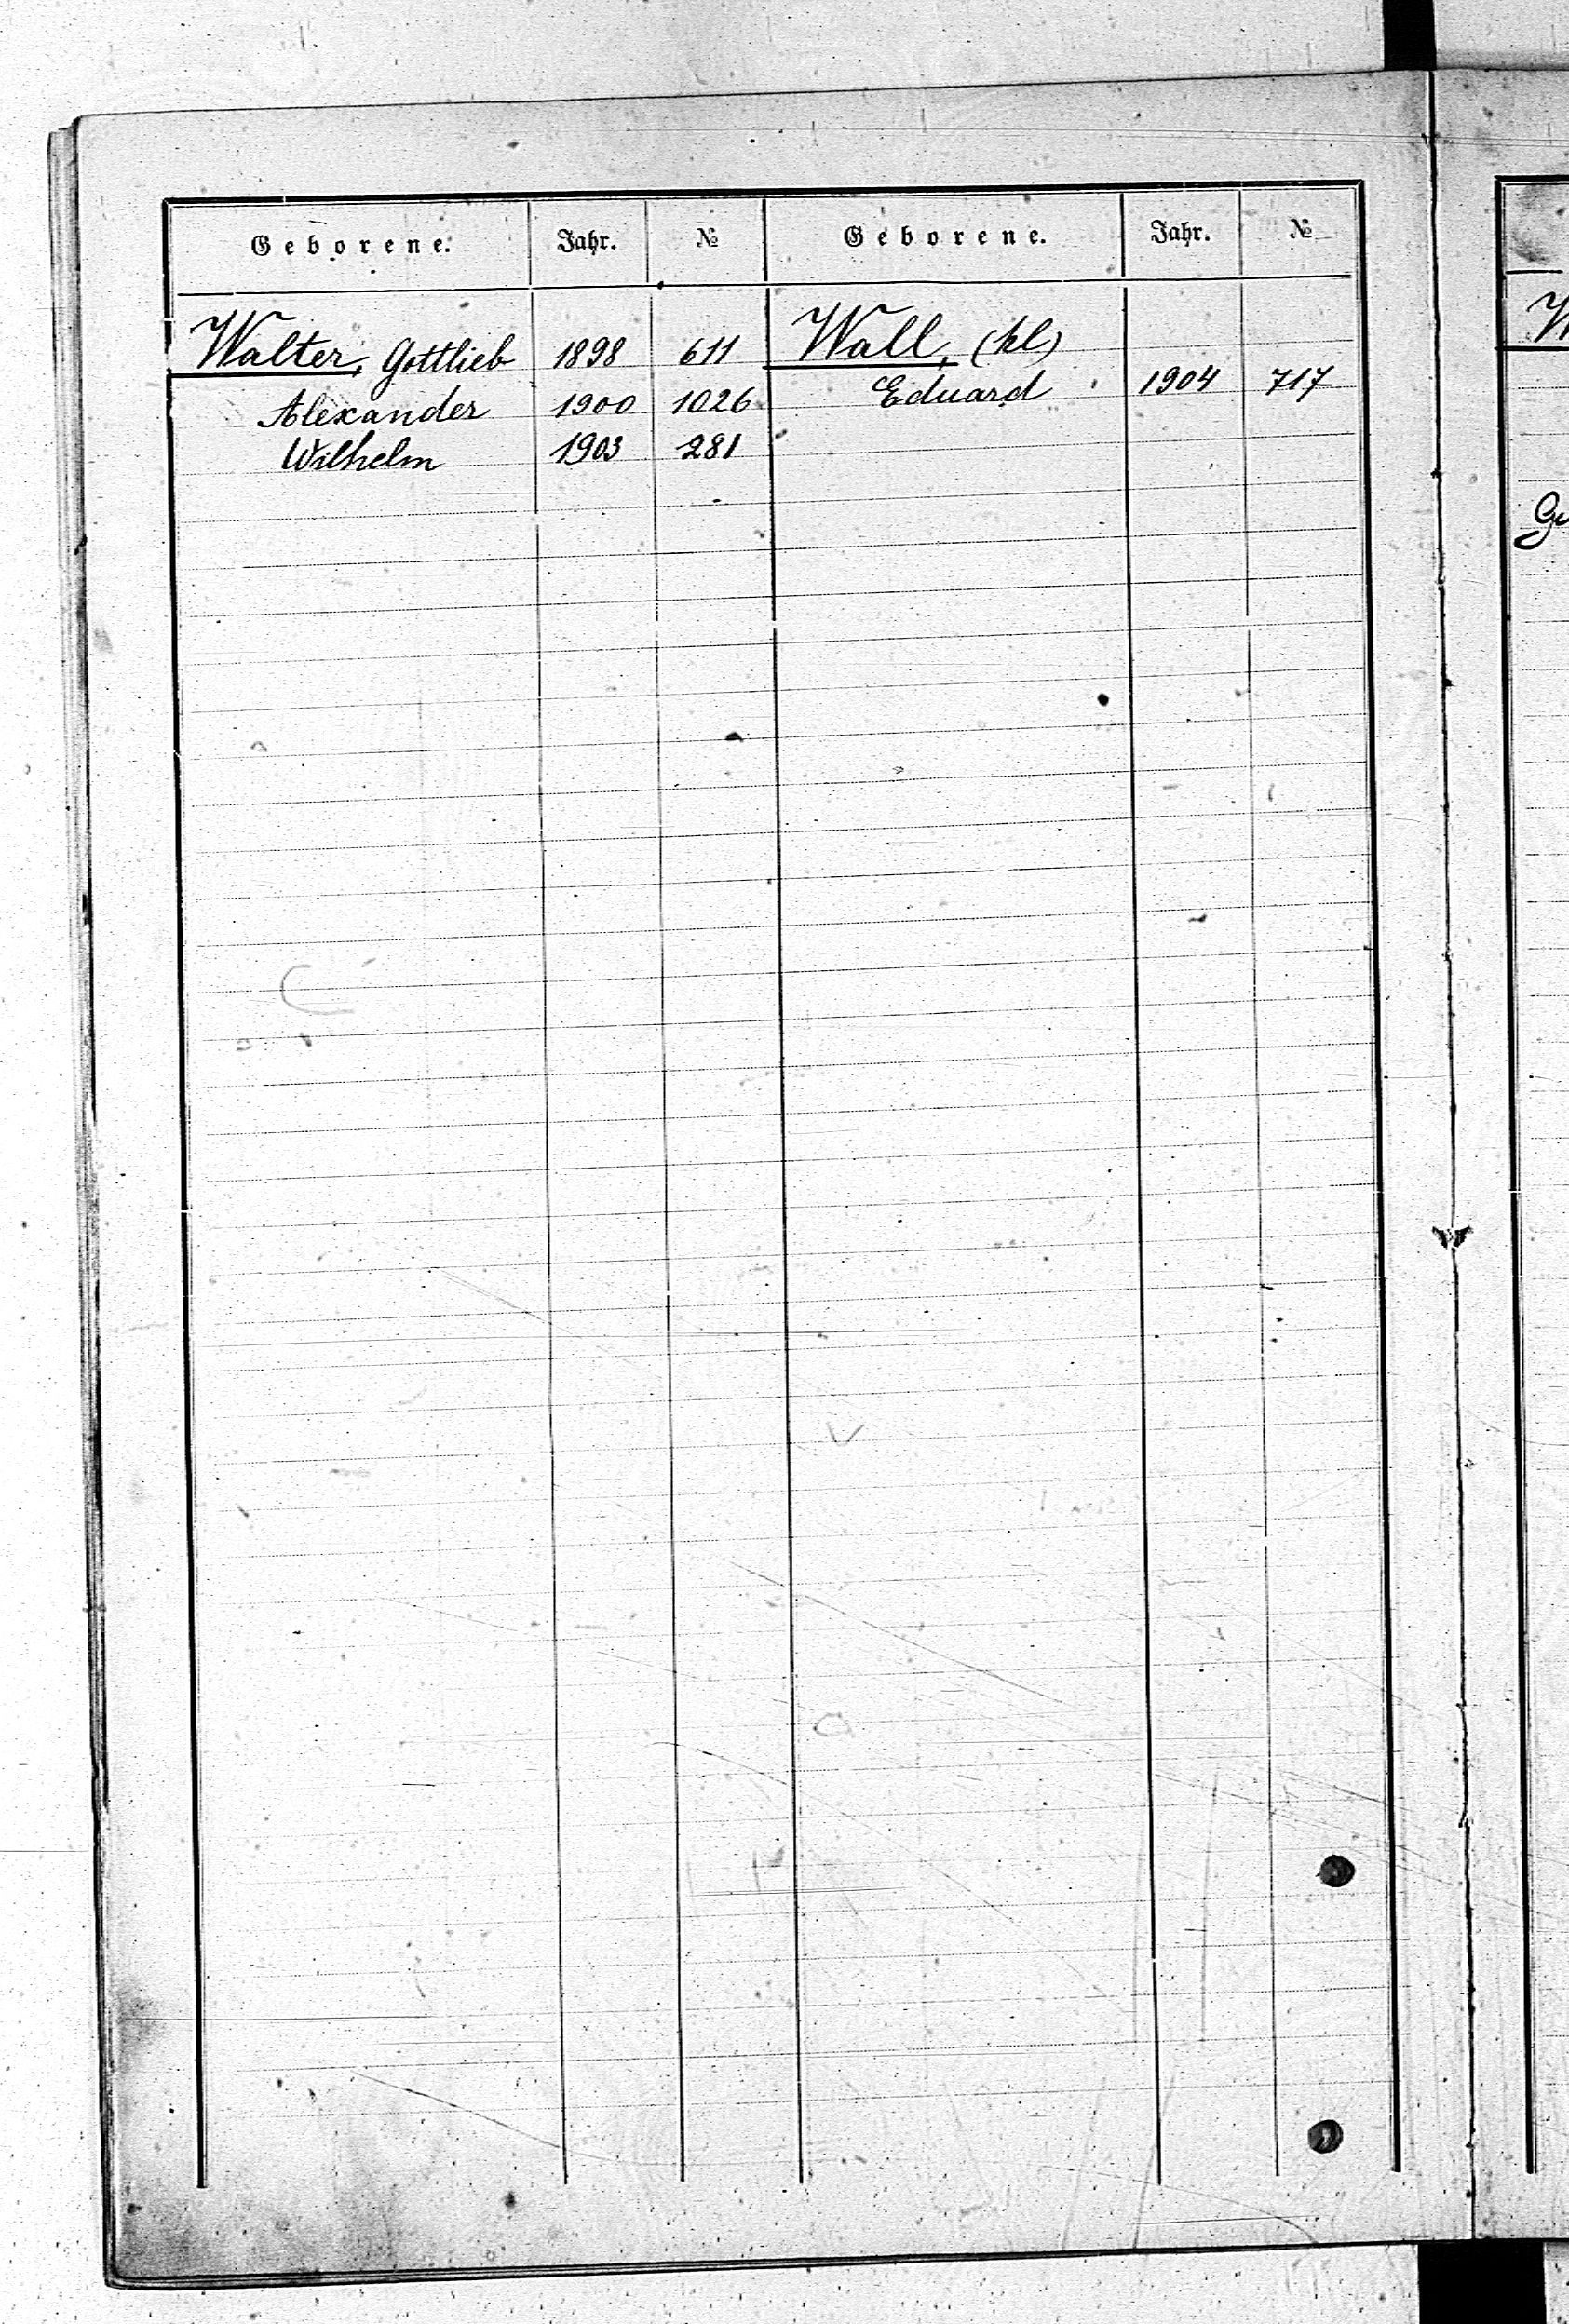 Geborene. Jahr. № Geborene. Jahr. №
Walter, Gottlieb 1898 611
Alexander 1900 1026
Wilhelm 1903 281
Wall,
Eduard 1904 717